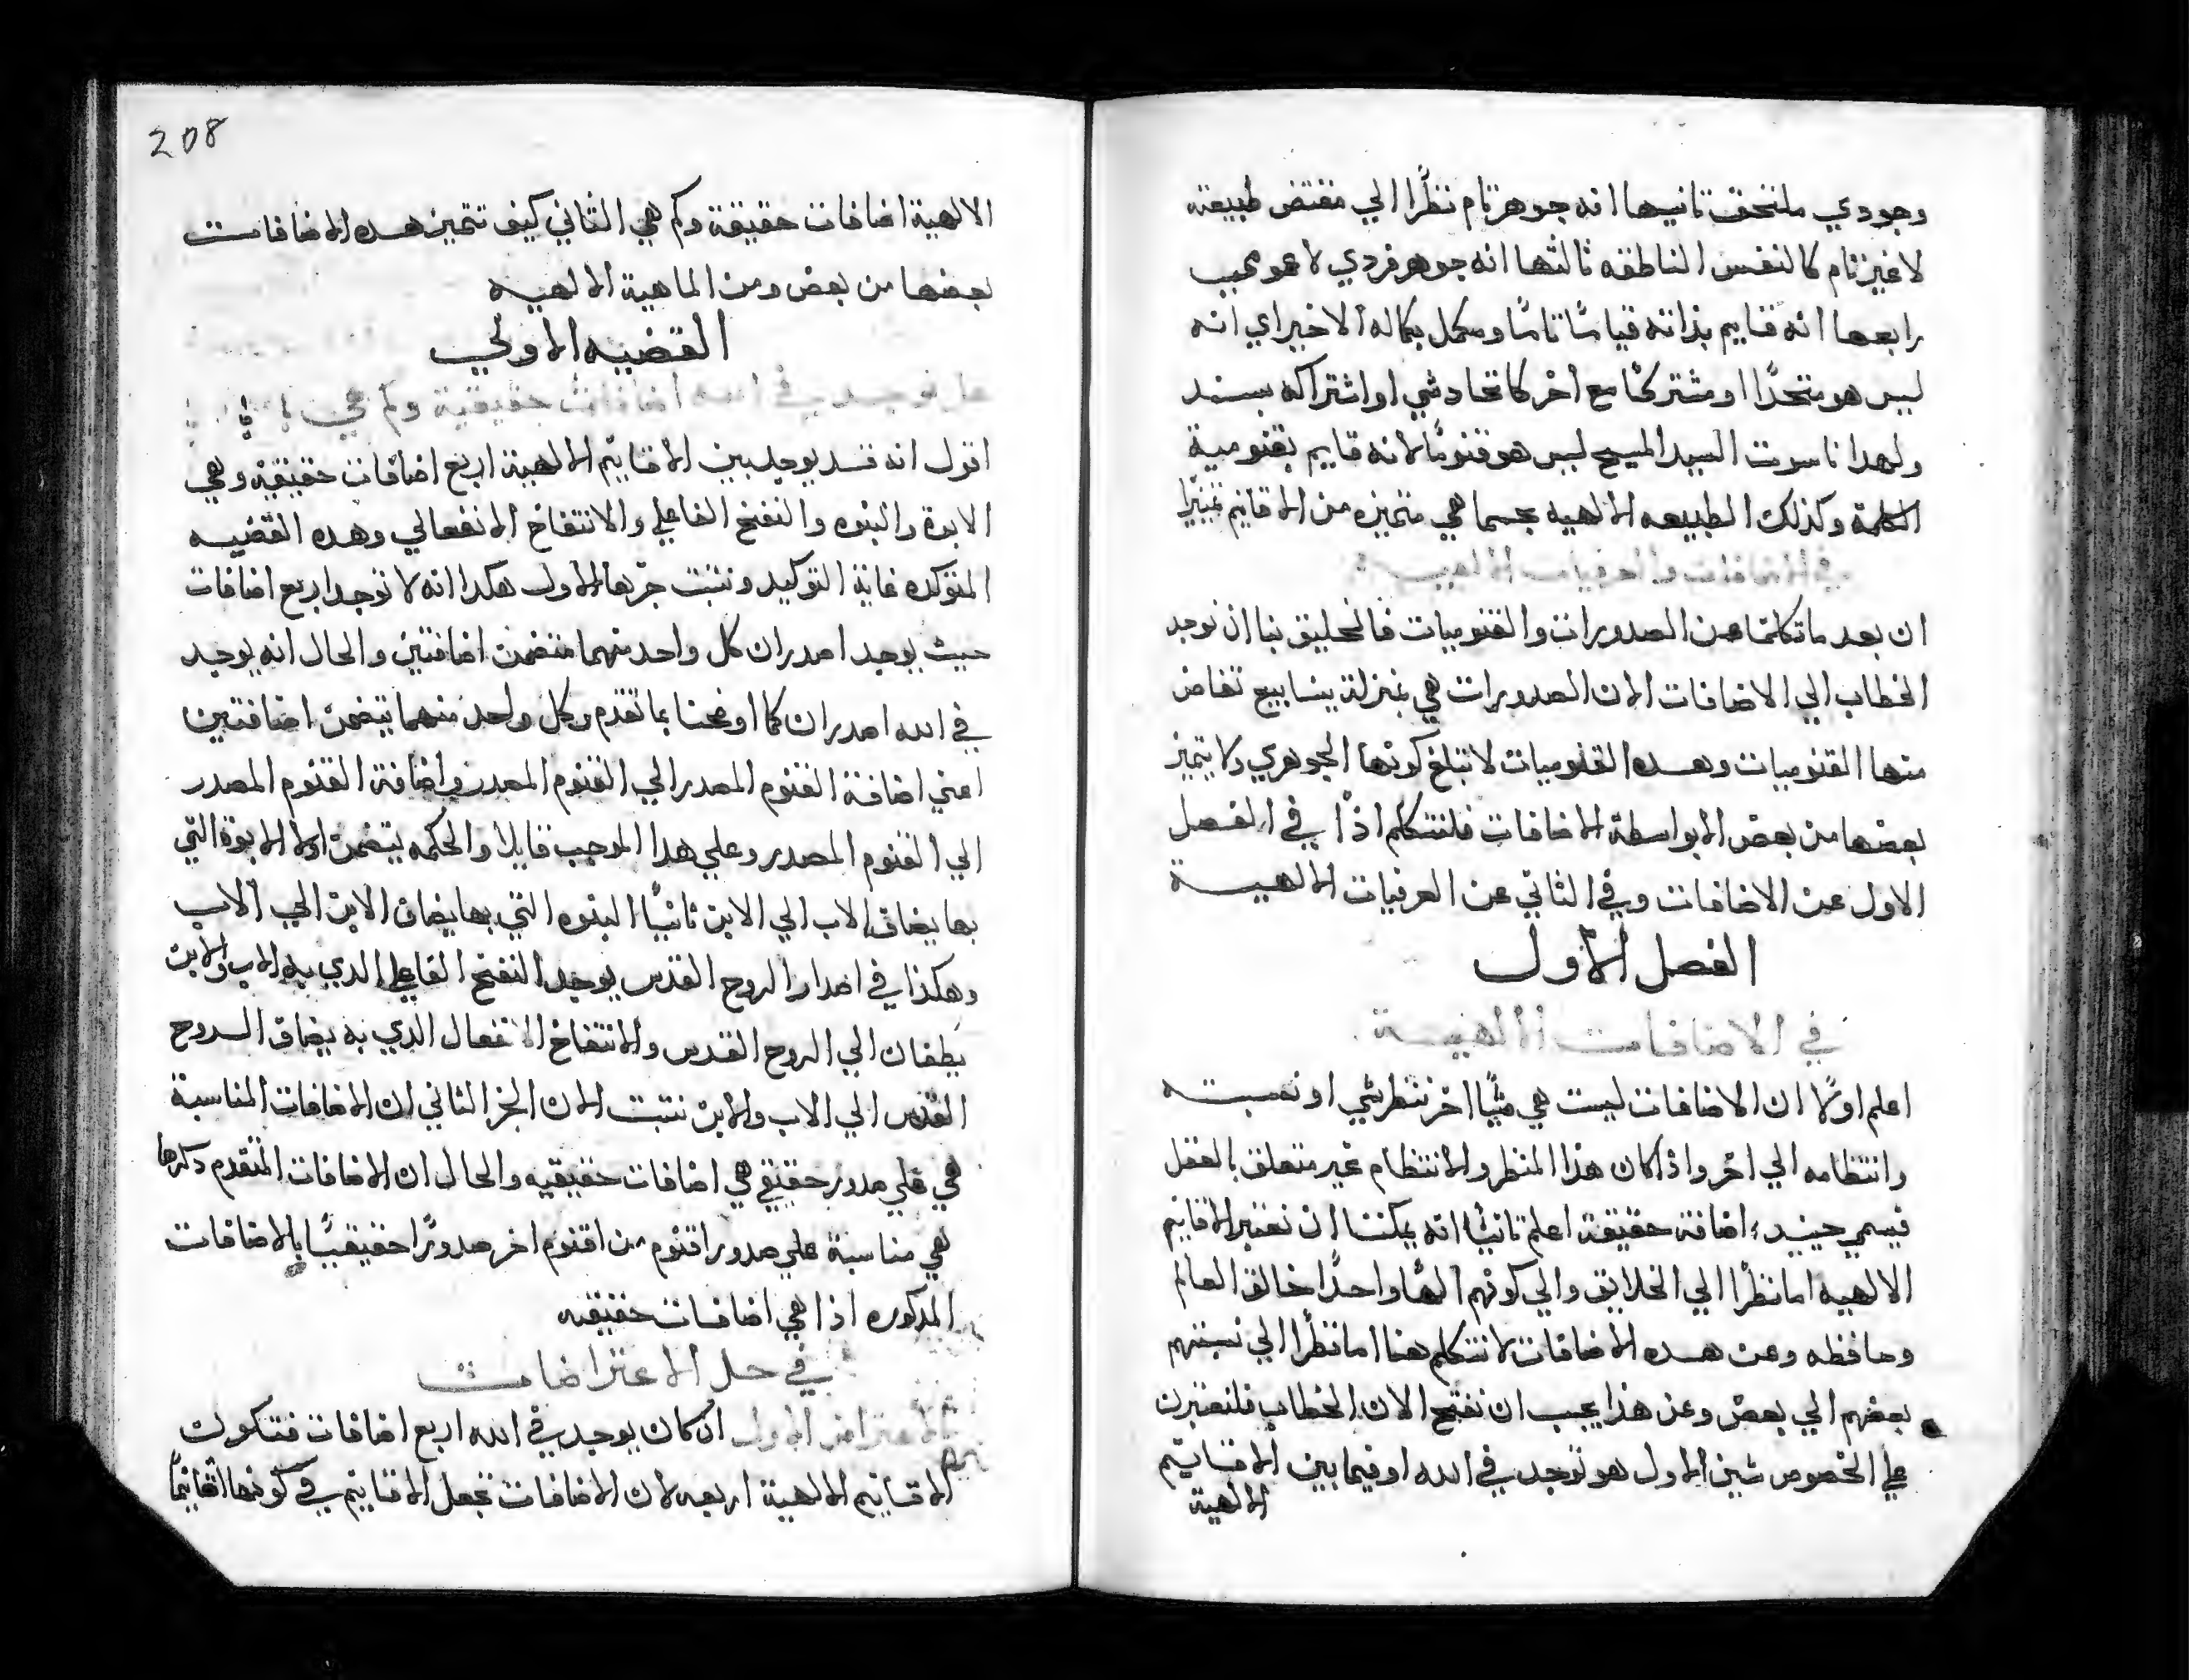 وجودي ملتحق تانيها انه جوهر تام نظرًا الي مقتض طبيعته
لا غير تام كالنفس الناطقه ثالثها انه جوهر فردي لا عمومي
رابعها انه قايم بذاته قيامًا تامًا ومكمل بكماله الاخير اي انه
ليس هو متحدًا او مشتركًا مع اخر كاتحاد شي او اشتراكه بسند
ولهدا ناسوت السيد المسيح ليس هو قنومًا لانه قايم بقنومية
الكلمة وكذلك الطبيعه الالهيه بحسما هي متميزه من الاقانيم تميزًا
في الاضافات والعرفيات الالهيه
ان بعد ما تكلمنا عن الصدورات والقنوميات فالخليق بنا ان نوجد
الخطاب الي الاضافات لان الصدورات هي بمنزلة ينابيع تفاض
منها القنوميات وهده القنوميات لا تبلغ كونها الجوهري ولا يتميز
بعضها من بعض الا بواسطة الاضافات فلنتكلم اذًا في الفصل
الاول عن الاضافات وفي الثاني عن العرفيات الالهية
الفصل الاول
في الاضافات الالهية
اعلم اولًا ان الاضافات ليست هي شيًا اخر ننظر شي او نصبته
وانتظامه الي اخر واذا كان هذا المنظر والانتظام غير متعلق بالعقل
فيسمي حينيد اضافة حقيقة اعلم تانيًا انه يمكننا ان نعتبر الاقانيم
الالهيه اما نظرًا الي الخلايق والي كونهم الهًا واحدًا خالق العالم
وحافظه وعن هده الاضافات لا نتكلم هنا اما نظرًا الي نسبتهم
بعضهم الي بعض وعن هذا يجب ان نفتح الان الخطاب فلنعتبرن
علي الخصوص شين الاول هو توجد في الله او فيما بين الاقانيم
الالهية
208
الالهية اضافات حقيقة وكم هي الثاني كيف تتميز هده الاضافات
بعضها من بعض ومن الماهية الالهيه
القضيه الاولي
هل توجد في الله اضافات حقيقية وكم هي
اقول انه قد يوجد بين الاقانيم الالهية اربع اضافات حقيقة وهي
الابوة والبنوه والنفخ الفاعلي والانتفاخ الانفعالي وهده القضيه
المتوكده غاية التوكيد ونتبت جزها الاول هكدا انه لا توجد اربع اضافات
حيث يوجد اصدران كل واحد منهما متضمن اضافتين والحال انه يوجد
في الله اصدران كما اوضحنا بما تقدم وكل واحد منهما يتضمن اضافتين
اعني اضافة القنوم المصدر الي القنوم المصدر واضافة القنوم المصدر
الي القنوم المصدر وعلي هدا الموجب قايلا والحكمه يتضمن اولا الابوة التي
بها يضاف الاب الي الابن ثانيًا البنوه التي بها يضاف الابن الي الاب
وهكذا في اصدار الروح القدس يوجد النفخ الفاعلي الدي به الاب والابن
يظفان الي الروح القدس والانتفاخ الانفعال الدي به يضاف الروح
القدس الي الاب والابن نتبت الان الجز الثاني ان الاضافات المناسبة
هي علي صدور حقيقي هي اضافات حقيقيه والحال ان الاضافات المتقدم دكرها
هي مناسبة علي صدور اقنوم من اقنوم اخر صدورًا حقيقيًا بالاضافات
المدكوره اذا هي اضافات حقيقيه
في حل الاعتراضات
الاعتراض الاول ان كان يوجد في الله اربع اضافات فتكون
الاقانيم الالهية اربعه لان الاضافات تجعل الاقانيم في كونها اقانيمًا